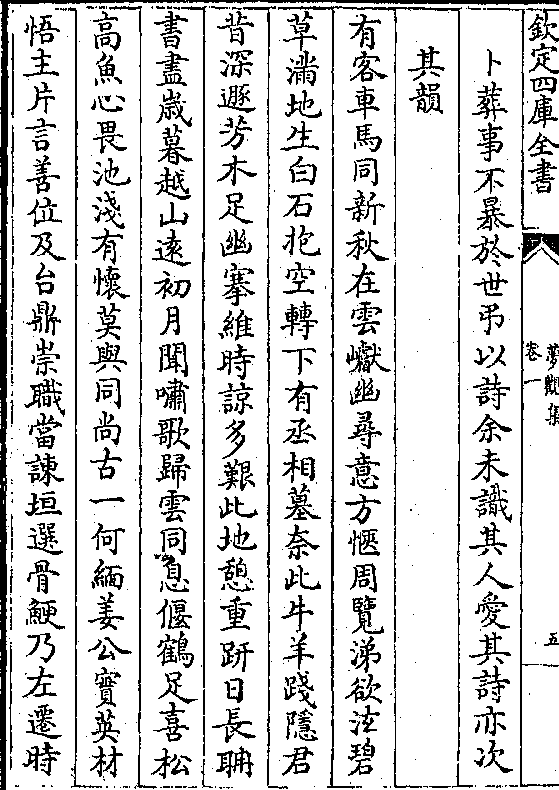 欽定四庫全書
夢觀集
卷一
五
卜葬事不暴於世弔以詩余未識其人愛其詩亦次
其韻
有客車馬同新秋在雲巘幽尋意方愜周覽涕欲泫碧
草滿地生白石抱空轉下有丞相墓奈此牛羊踐隱君
昔深遯芳木足幽搴維時諒多艱此地憩重趼日長聊
書盡歲暮越山遠初月聞嘯歌歸雲同息偃鶴足喜松
高魚心畏池淺有懷莫與同尚古一何緬姜公實英材
悟主片言善位及台鼎崇職當諫垣選骨鯁乃左遷時